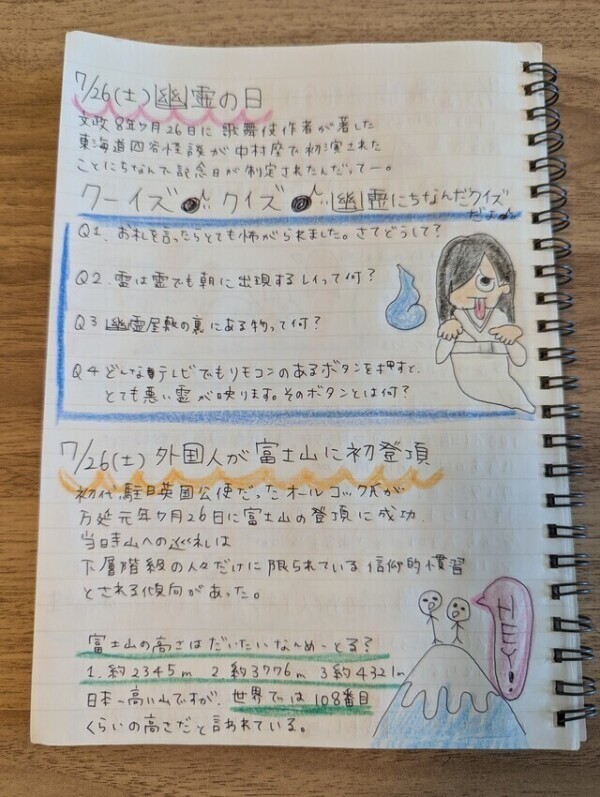 7/26(土)幽霊の日
文政8年7月26日に歌舞伎作者が著した
東海道四谷怪談が中村座で初演された
ことにちなんで記念日が制定されたんだってー。
クーイズ♪クイズ♪幽霊にちなんだクイズ
だよ♪
Q1. お礼を言ったらとても怖がられました。さてどうして？
Q2. 霊は霊でも朝に出現するレイって何？
Q3 幽霊屋敷の裏にある物って何？
Q4 どんなテレビでもリモコンのあるボタンを押すと、
とても悪い霊が映ります。そのボタンとは何？
7/26(土) 外国人が富士山に初登頂
初代駐日英国公使だったオールコック氏が
万延元年7月26日に富士山の登頂に成功.
当時山への巡礼は
下層階級の人々だけに限られている信仰的慣習
とされる傾向があった。
HEY!
富士山の高さはだいたいなんめーとる？
1. 約2345m 2. 約3776m 3約4321m
日本一高い山ですが、世界では108番目
くらいの高さだと言われている。